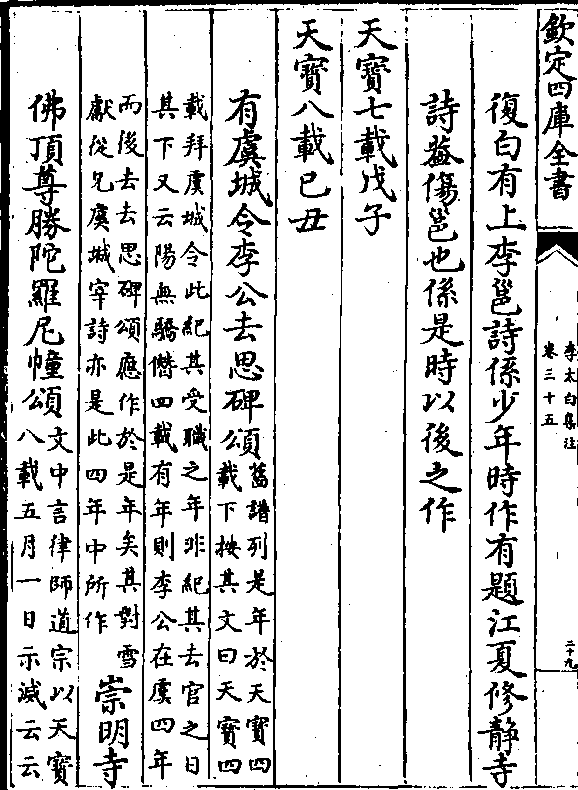 欽定四庫全書
李太白集注
卷三十五
二十九
復白有上李邕詩係少年時作有題江夏修靜寺
詩葢傷邕也係是時以後之作
天寶七載戊子
天寶八載己丑
有虞城令李公去思碑頌舊譜列是年於天寶四
載下按其文曰天寶四
載拜虞城令此紀其受職之年非紀其去官之日
其下又云陽無驕僭四載有年則李公在虞四年
而後去去思碑頌應作於是年矣其對雪
獻從兄虞城宰詩亦是此四年中所作
崇明寺
佛頂尊勝陀羅尼幢頌文中言律師道宗以天寶
八載五月一日示滅云云